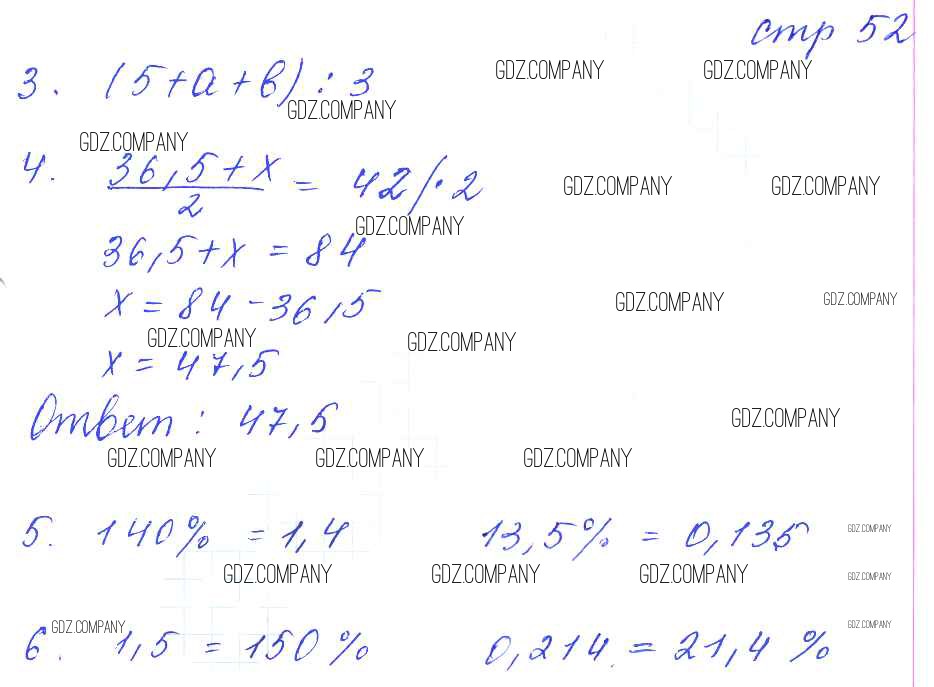 стр 52
GDZ.COMPANY GDZ.COMPANY
3. (5+а+в) : 3
GDZ.COMPANY
GDZ.COMPANY
4. 36,5+х
2 = 42 /·2
GDZ.COMPANY GDZ.COMPANY
GDZ.COMPANY
36,5+х = 84
х = 84-36,5
GDZ.COMPANY GDZ.COMPANY
GDZ.COMPANY GDZ.COMPANY
х = 47,5
Ответ: 47,5
GDZ.COMPANY
GDZ.COMPANY GDZ.COMPANY GDZ.COMPANY
5. 140% = 1,4 13,5% = 0,135
GDZ.COMPANY
GDZ.COMPANY GDZ.COMPANY GDZ.COMPANY GDZ.COMPANY
GDZ.COMPANY GDZ.COMPANY
6. 1,5 = 150% 0,214 = 21,4 %